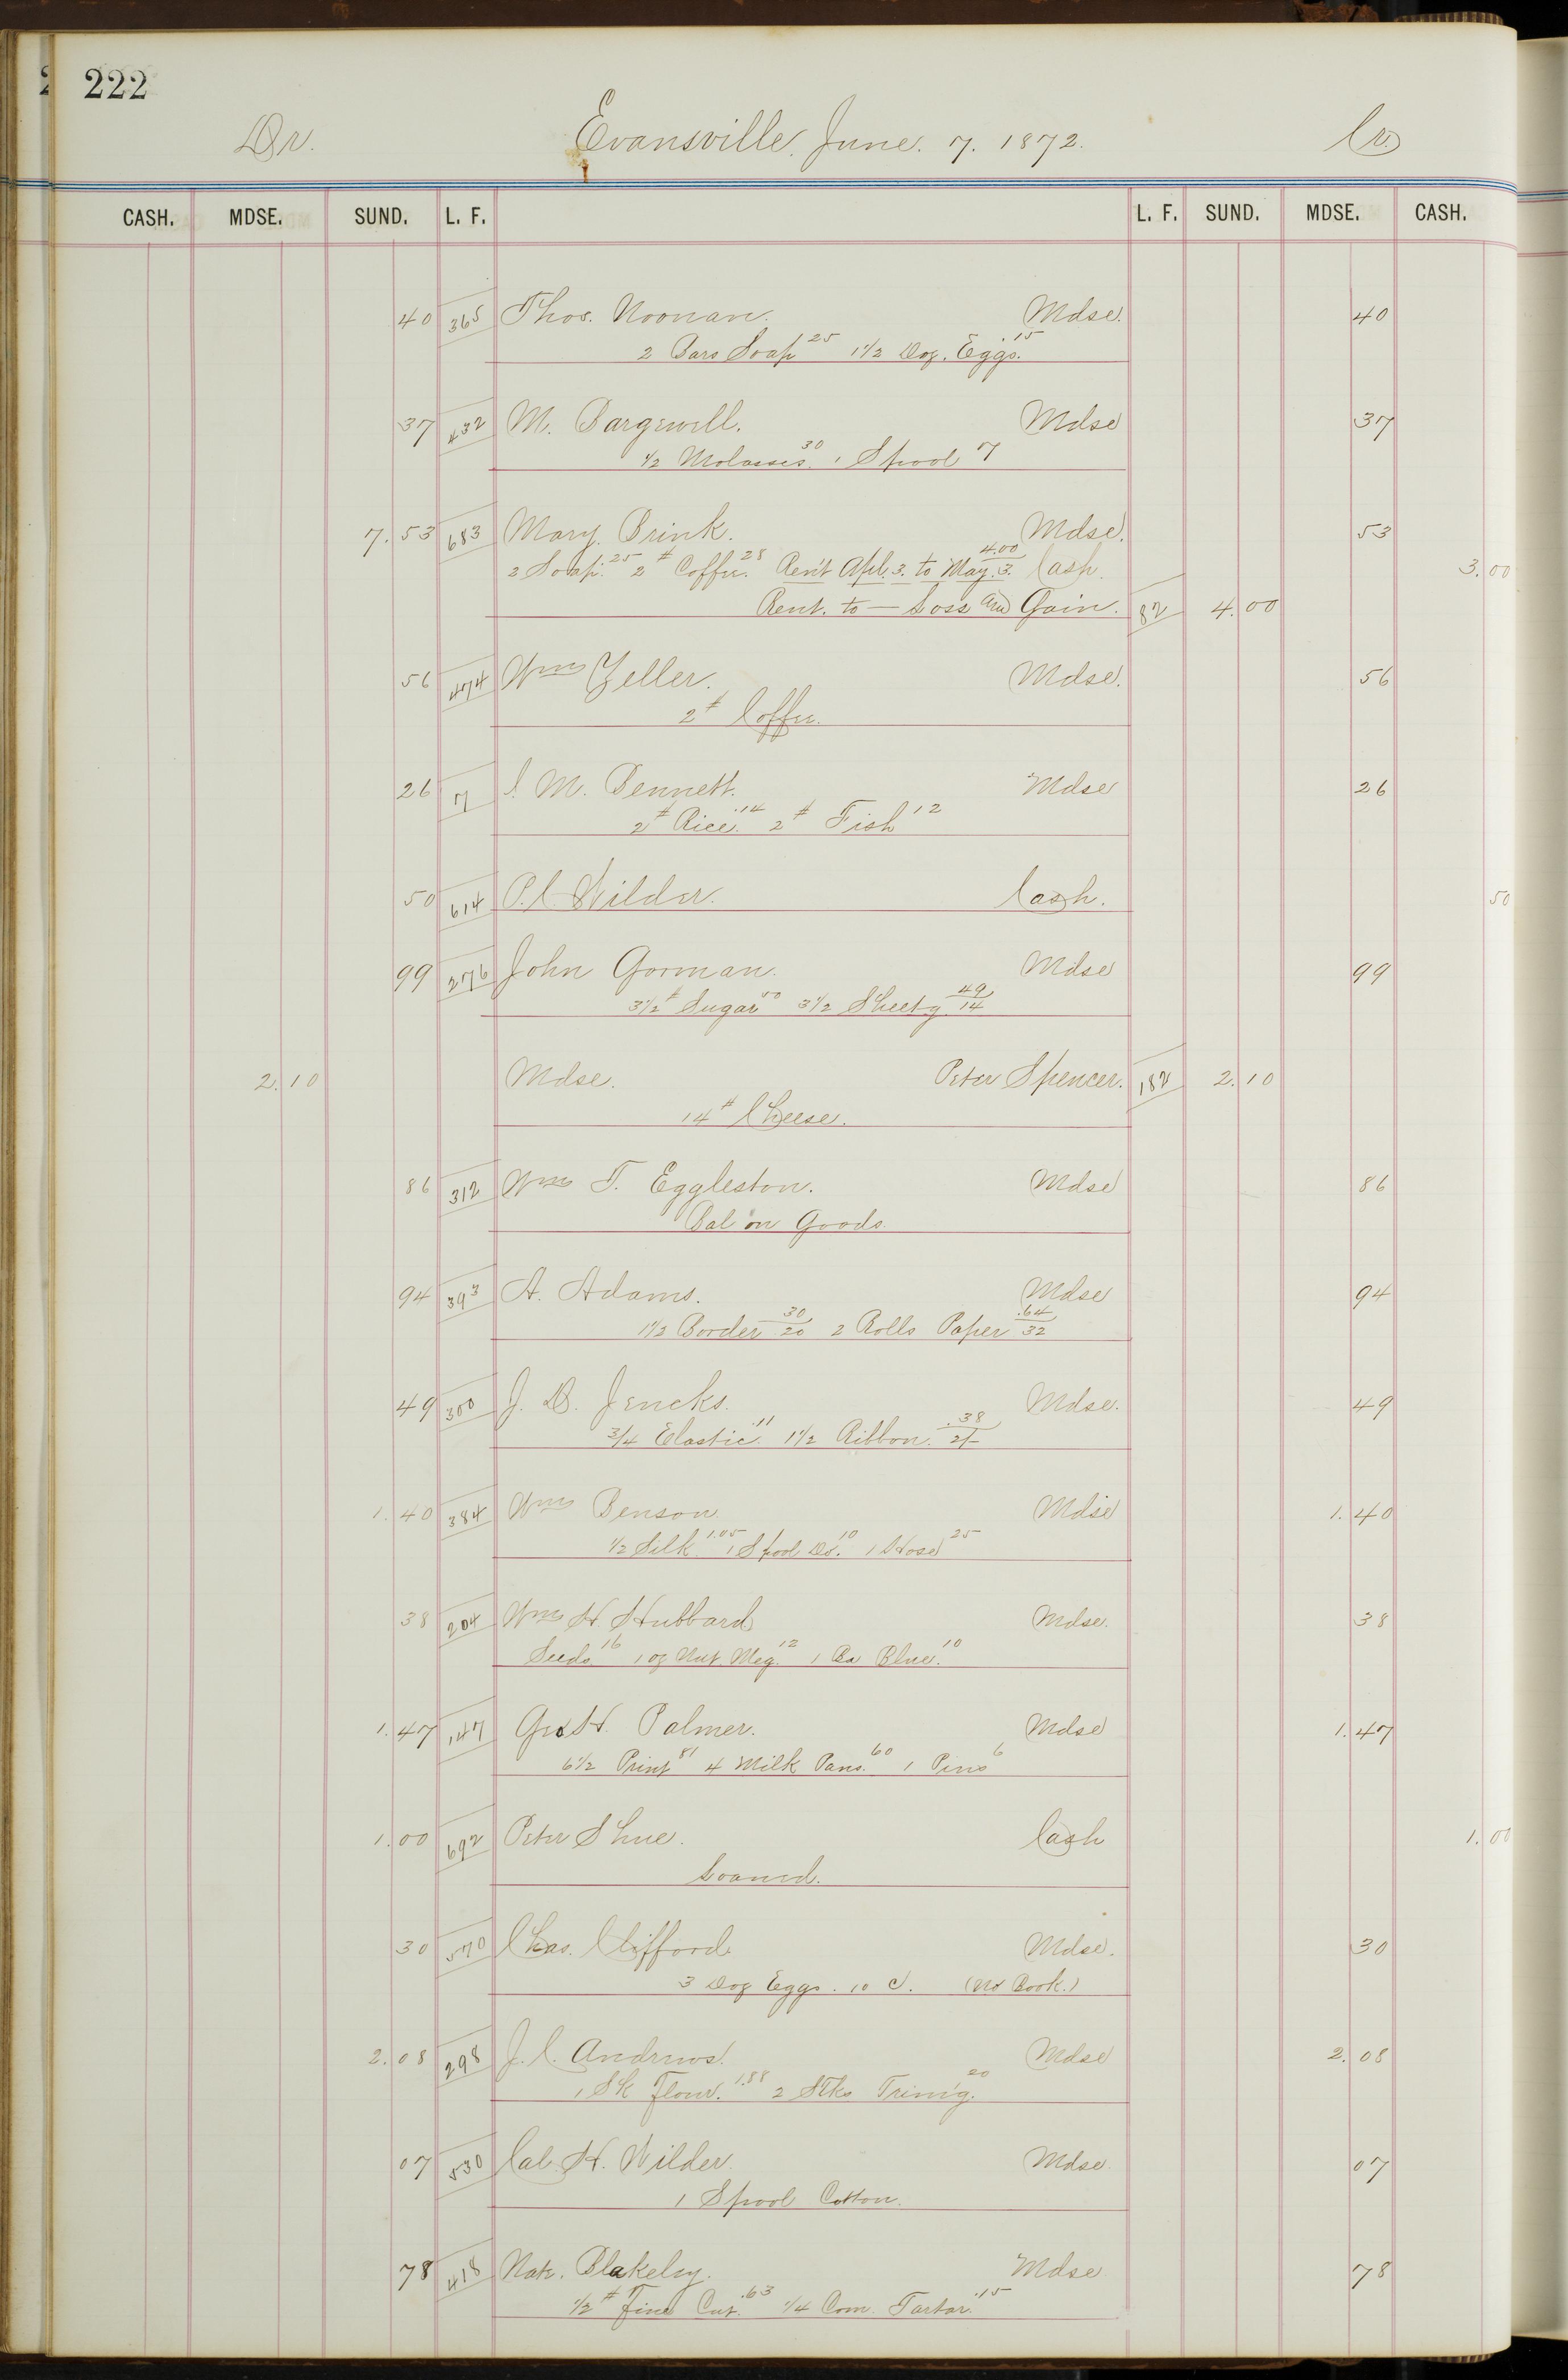 222
Dr. Evansville, June. 7. 1872. Cr.
CASH. MDSE. SUND. L. F. L. F. SUND. MDSE. CASH.
40 365 Thos. Noonan. Mdse. 40
2 Bars Soap 25 1 1/2 Doz. Eggs. 15
37 432 M. Bargewell. Mdse 37
1/2 Molasses. 30 1 Spool 7
7.53 683 Mary Brink. Mdse. 53
2 Soap. 25 2 # Coffee. 28 Rent Apl. 3. to May. 3. 4.00 Cash. 3.00
Rent. to — Loss and Gain. 82 4.00
56 474 Wm Zeller. Mdse. 56
2 # Coffee.
26 7 C. M. Bennett. Mdse 26
2 # Rice. .14 2 # Fish 12
50 614 P. C. Wilder. Cash. 50
99 276 John Gorman. Mdse 99
3 1/2 # Sugar 50 3 1/2 Sheetg. 49/14
2.10 Mdse. Peter Spencer. 182 2.10
14 # Cheese.
86 312 Wm T. Eggleston. Mdse 86
Bal on Goods.
94 393 A. Adams. Mdse 94
1 1/2 Border 30/20 2 Rolls Paper .64/32
49 300 J. D. Jencks. Mdse. 49
3/4 Elastic. .11 1 1/2 Ribbon. .38/2/-
1.40 384 Wm Benson Mdse 1.40
1/2 Silk 1.05 1 Spool Do. 10 1 Hose 25
38 204 Wm H. Hubbard Mdse. 38
Seeds 16 1 oz Nut. Meg. 12 1 Ba Blue. 10
1.47 147 Geo H. Palmer. Mdse 1.47
6 1/2 Print 81 4 Milk Pans. 60 1 Pins 6
1.00 692 Peter Shue. Cash 1.00
Loaned.
30 570 Chas. Clifford Mdse. 30
3 Doz Eggs. 10 c. (No Book.)
2.08 298 J. C. Andrews. Mdse 2.08
1 Sk Flour. 1.88 2 Stks Trim'g. 20
07 530 Cal. H. Wilder. Mdse 07
1 Spool Cotton.
78 418 Nat. Blakeley. Mdse 78
1/2 # Fine Cut. .63 1/4 Com. Tartar. .15